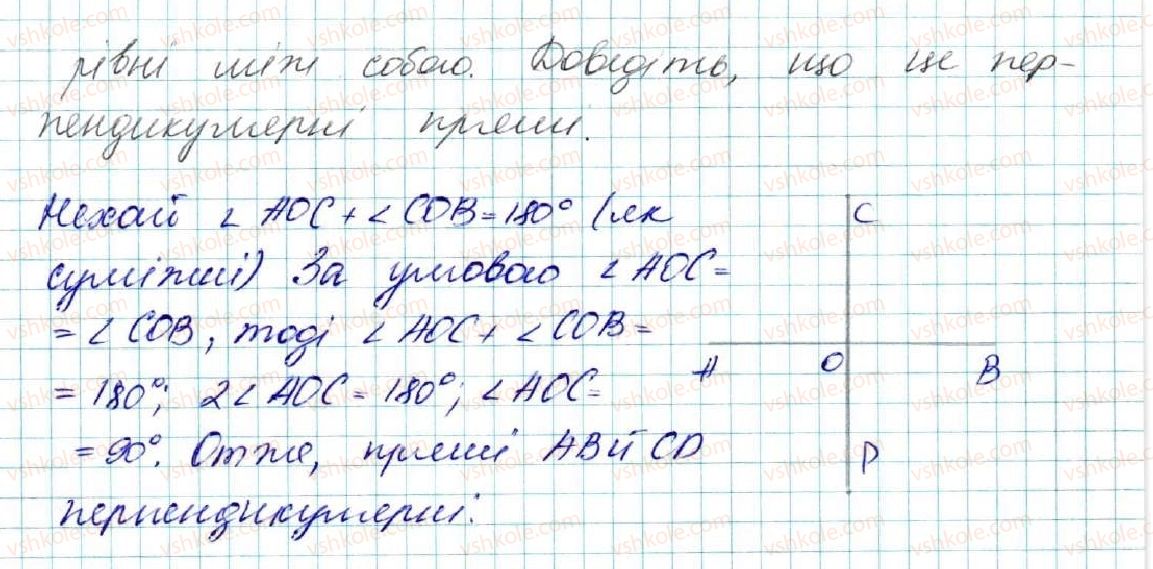 рівні між собою. Доведіть, що це пер-
пендикулярні прямі.
Нехай ∠ AOC + ∠ COB = 180° (як
суміжні) За умовою ∠ AOC =
= ∠ COB, тоді ∠ AOC + ∠ COB =
= 180°; 2∠ AOC = 180°; ∠ AOC =
= 90°. Отже, прямі AB й CD
перпендикулярні.
C
A O B
D
vshkole.com